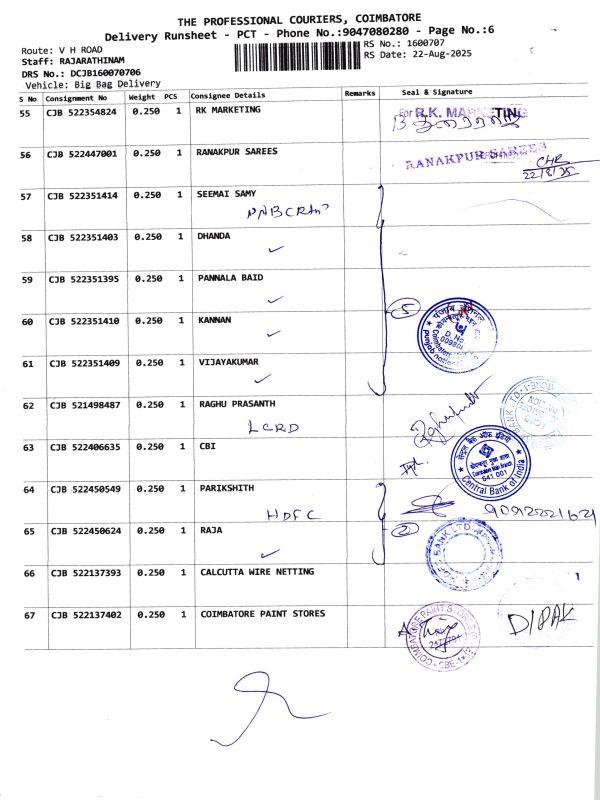 THE PROFESSIONAL COURIERS, COIMBATORE
Delivery Runsheet - PCT - Phone No.:9047080280 - Page No.:6
Route: V H ROAD
RS No.: 1600707
Staff: RAJARATHINAM
RS Date: 22-Aug-2025
DRS No.: DCJB160070706
Vehicle: Big Bag Delivery
S No Consignment No Weight PCS Consignee Details Remarks Seal & Signature
55 CJB 522354824 0.250 1 RK MARKETING
For R.K. MARKETING
56 CJB 522447001 0.250 1 RANAKPUR SAREES
RANAKPUR SAREES
22/8/25
57 CJB 522351414 0.250 1 SEEMAI SAMY
58 CJB 522351403 0.250 1 DHANDA
59 CJB 522351395 0.250 1 PANNALA BAID
5
60 CJB 522351410 0.250 1 KANNAN
61 CJB 522351409 0.250 1 VIJAYKUMAR
62 CJB 521498487 0.250 1 RAGHU PRASANTH
LCRD
63 CJB 522406635 0.250 1 CBI
Central Bank of India
641 001
64 CJB 522450549 0.250 1 PARIKSHITH
HDFC
65 CJB 522450624 0.250 1 RAJA
2
66 CJB 522137393 0.250 1 CALCUTTA WIRE NETTING
67 CJB 522137402 0.250 1 COIMBATORE PAINT STORES
COIMBATORE PAINT STORES
DIPAK